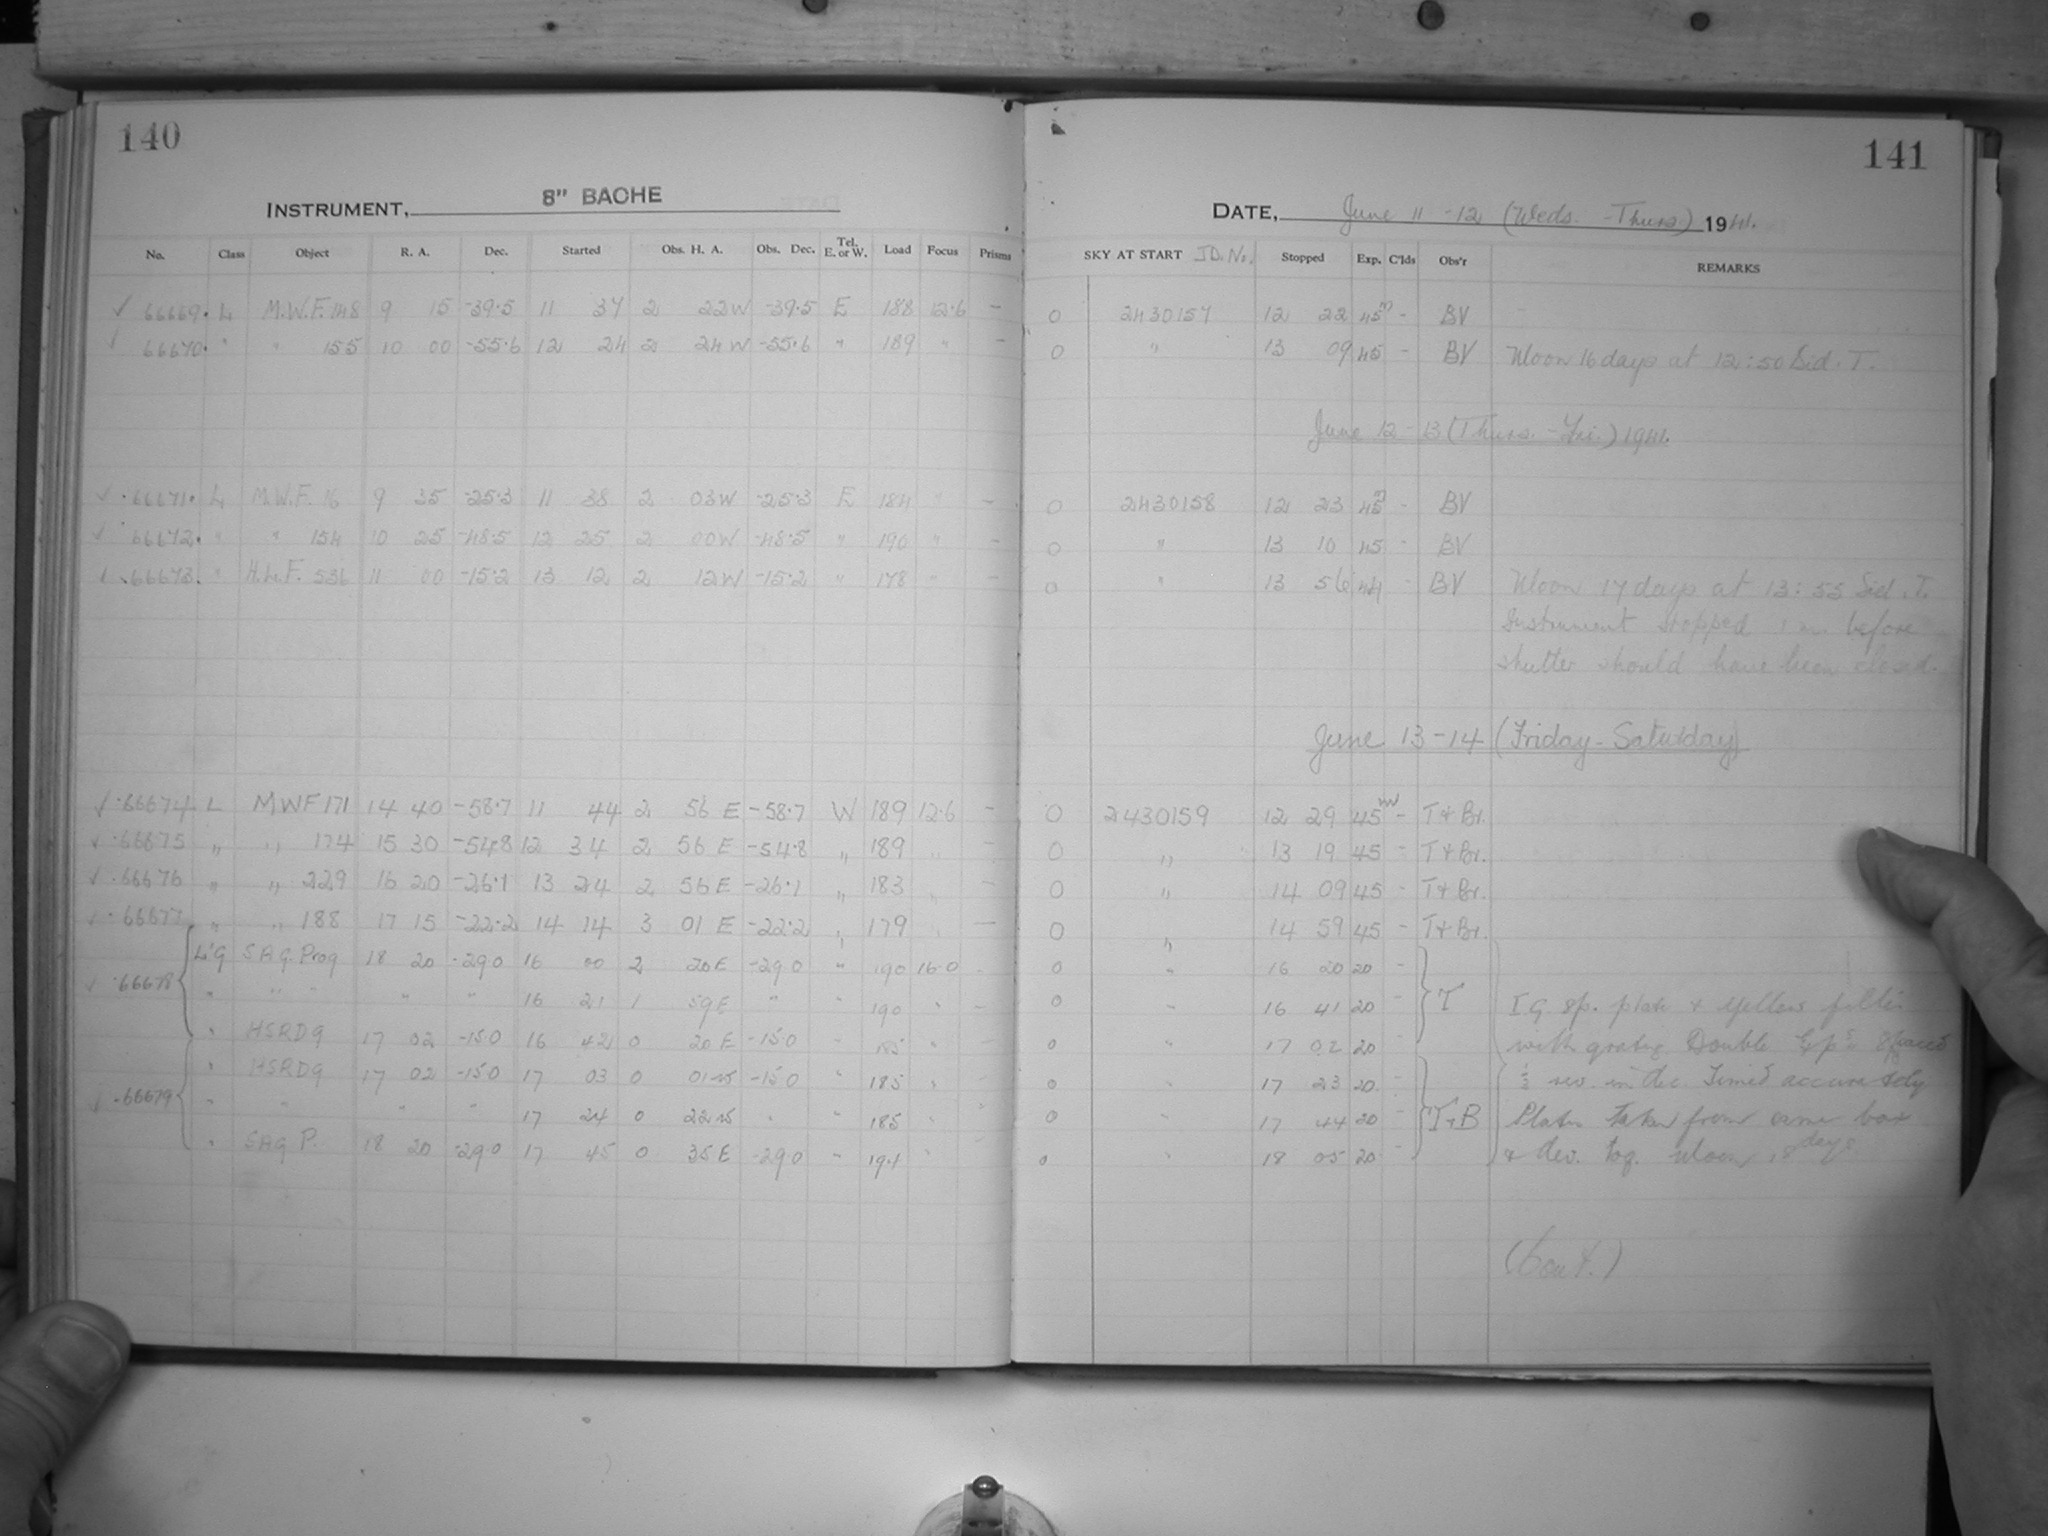 140
INSTRUMENT, 8" BACHE
No. Class Object R. A. Dec. Started Obs. H. A. Obs. Dec. Tel. E. or W. Load Focus Prisms
✓ 66669. L M.W.F. 148 9 15 -39.5 11 37 2 22W -39.5 E 188 12.6 —
✓ 66670. " " 155 10 00 -55.6 12 24 2 24W -55.6 " 189 " —
✓ .66671. L M.W.F. 16 9 35 -25.3 11 38 2 03W -25.3 E 184 " —
✓ 66672. " " 154 10 25 -48.5 12 25 2 00W -48.5 " 190 " —
✓ .66673. " H.L.F. 536 11 00 -15.2 13 12 2 12W -15.2 " 178 " —
✓ .66674 L MWF 171 14 40 -58.7 11 44 2 56 E -58.7 W 189 12.6 —
✓ .66675 " " 174 15 30 -54.8 12 34 2 56 E -54.8 " 189 " —
✓ .66676 " " 229 16 20 -26.1 13 24 2 56 E -26.1 " 183 " —
✓ .66677 " " 188 17 15 -22.2 14 14 3 01 E -22.2 " 179 " —
L'G SAG. Prog 18 20 -290 16 00 2 20E -290 " 190 16.0 -
✓ .66678 " " " " " 16 21 1 59E " " 190 " -
" HSRDG 17 02 -150 16 42 0 20 E -150 " 185 " -
" HSRDG 17 02 -150 17 03 0 01 W -150 " 185 " -
✓ .66679 " " " " 17 24 0 22 W " " 185 " -
" SAG P. 18 20 -290 17 45 0 35 E -290 " 191 "
141
DATE, June 11-12 (Weds. -Thurs) 1941.
SKY AT START J.D. No. Stopped Exp. C'lds Obs'r REMARKS
0 2430157 12 22 45m - BV
0 " 13 09 45 - BV Moon 16 days at 12:50 Sid. T.
June 12-13 (Thurs. -Fri.) 1941.
0 2430158 12 23 45m - BV
0 " 13 10 45 - BV
0 " 13 56 44 - BV Moon 17 days at 13:55 Sid. T.
Instrument stopped 1 m. before
shutter should have been closed.
June 13-14 (Friday-Saturday)
0 2430159 12 29 45m - T+Br.
0 " 13 19 45 - T+Br.
0 " 14 09 45 - T+Br.
0 " 14 59 45 - T+Br.
0 " 16 20 20 -
0 " 16 41 20 - T I.G. sp. plate + yellow filter
0 " 17 02 20 - with grating. Double Exps spaced
0 " 17 23 20 - rev. in dec. Timed accurately
0 " 17 44 20 - T+B Plates taken from same box
0 " 18 05 20 - + dev. tog. Moon 18 days
(Cont.)